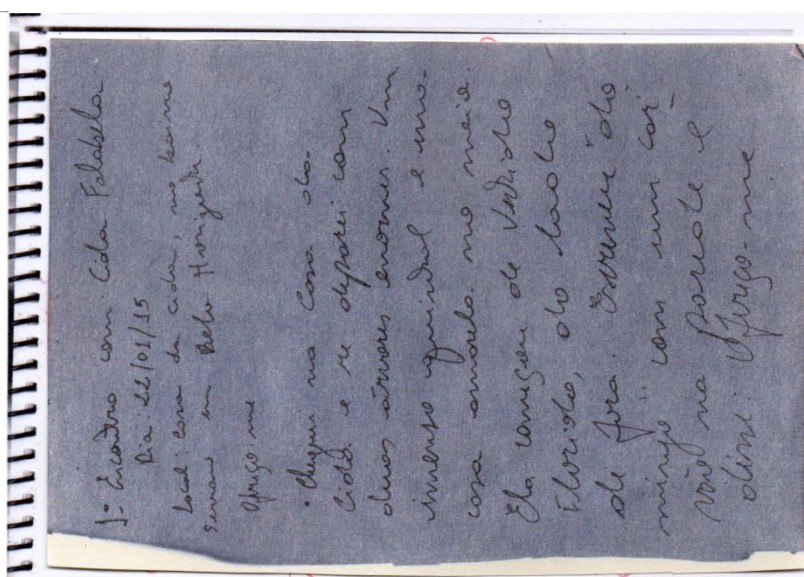 1º Encontro com: Cida Falabela
Dia: 22/01/15
Local: casa da cida, no bairro
Serrano em Belo Horizonte.
Aprigo-me
• Cheguei na Casa da
Cida e me deparei com
duas árvores enormes. Um
imenso quintal e uma
casa amarela no meio.
Ela comigou de vestido
Florido, do lado
de fora. Escrevendo
com um car-
vão na parede e
disse: Aprigo-me